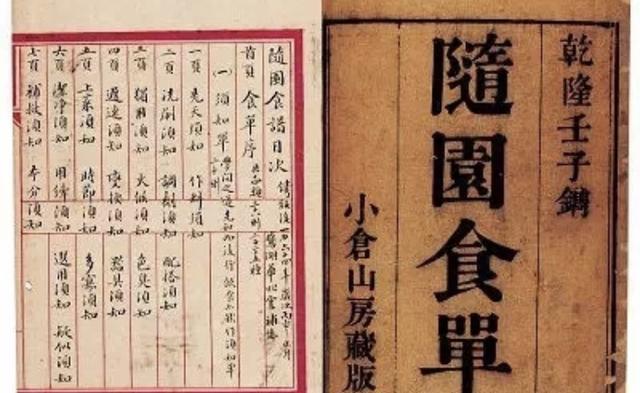 乾隆壬子鐫
隨園食單
小倉山房藏版
隨園食譜目次
首頁 食單序
(一) 須知單 學問之道先知而後行飲食亦然作須知單
一頁 先天須知 作料須知
二頁 洗刷須知 調劑須知 配搭須知
三頁 獨用須知 火候須知 色臭須知
四頁 遲速須知 變換須知 器具須知
五頁 上菜須知 時節須知 多寡須知
六頁 潔淨須知 用縴須知 選用須知 疑似須知
七頁 補救須知 本分須知